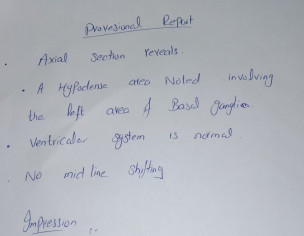 Provesional Report
. Axial Section reveals.
. A Hypodense area Noted involving
the left area of Basal ganglia.
. Ventricular system is normal
. No mid line Shifting
Impression